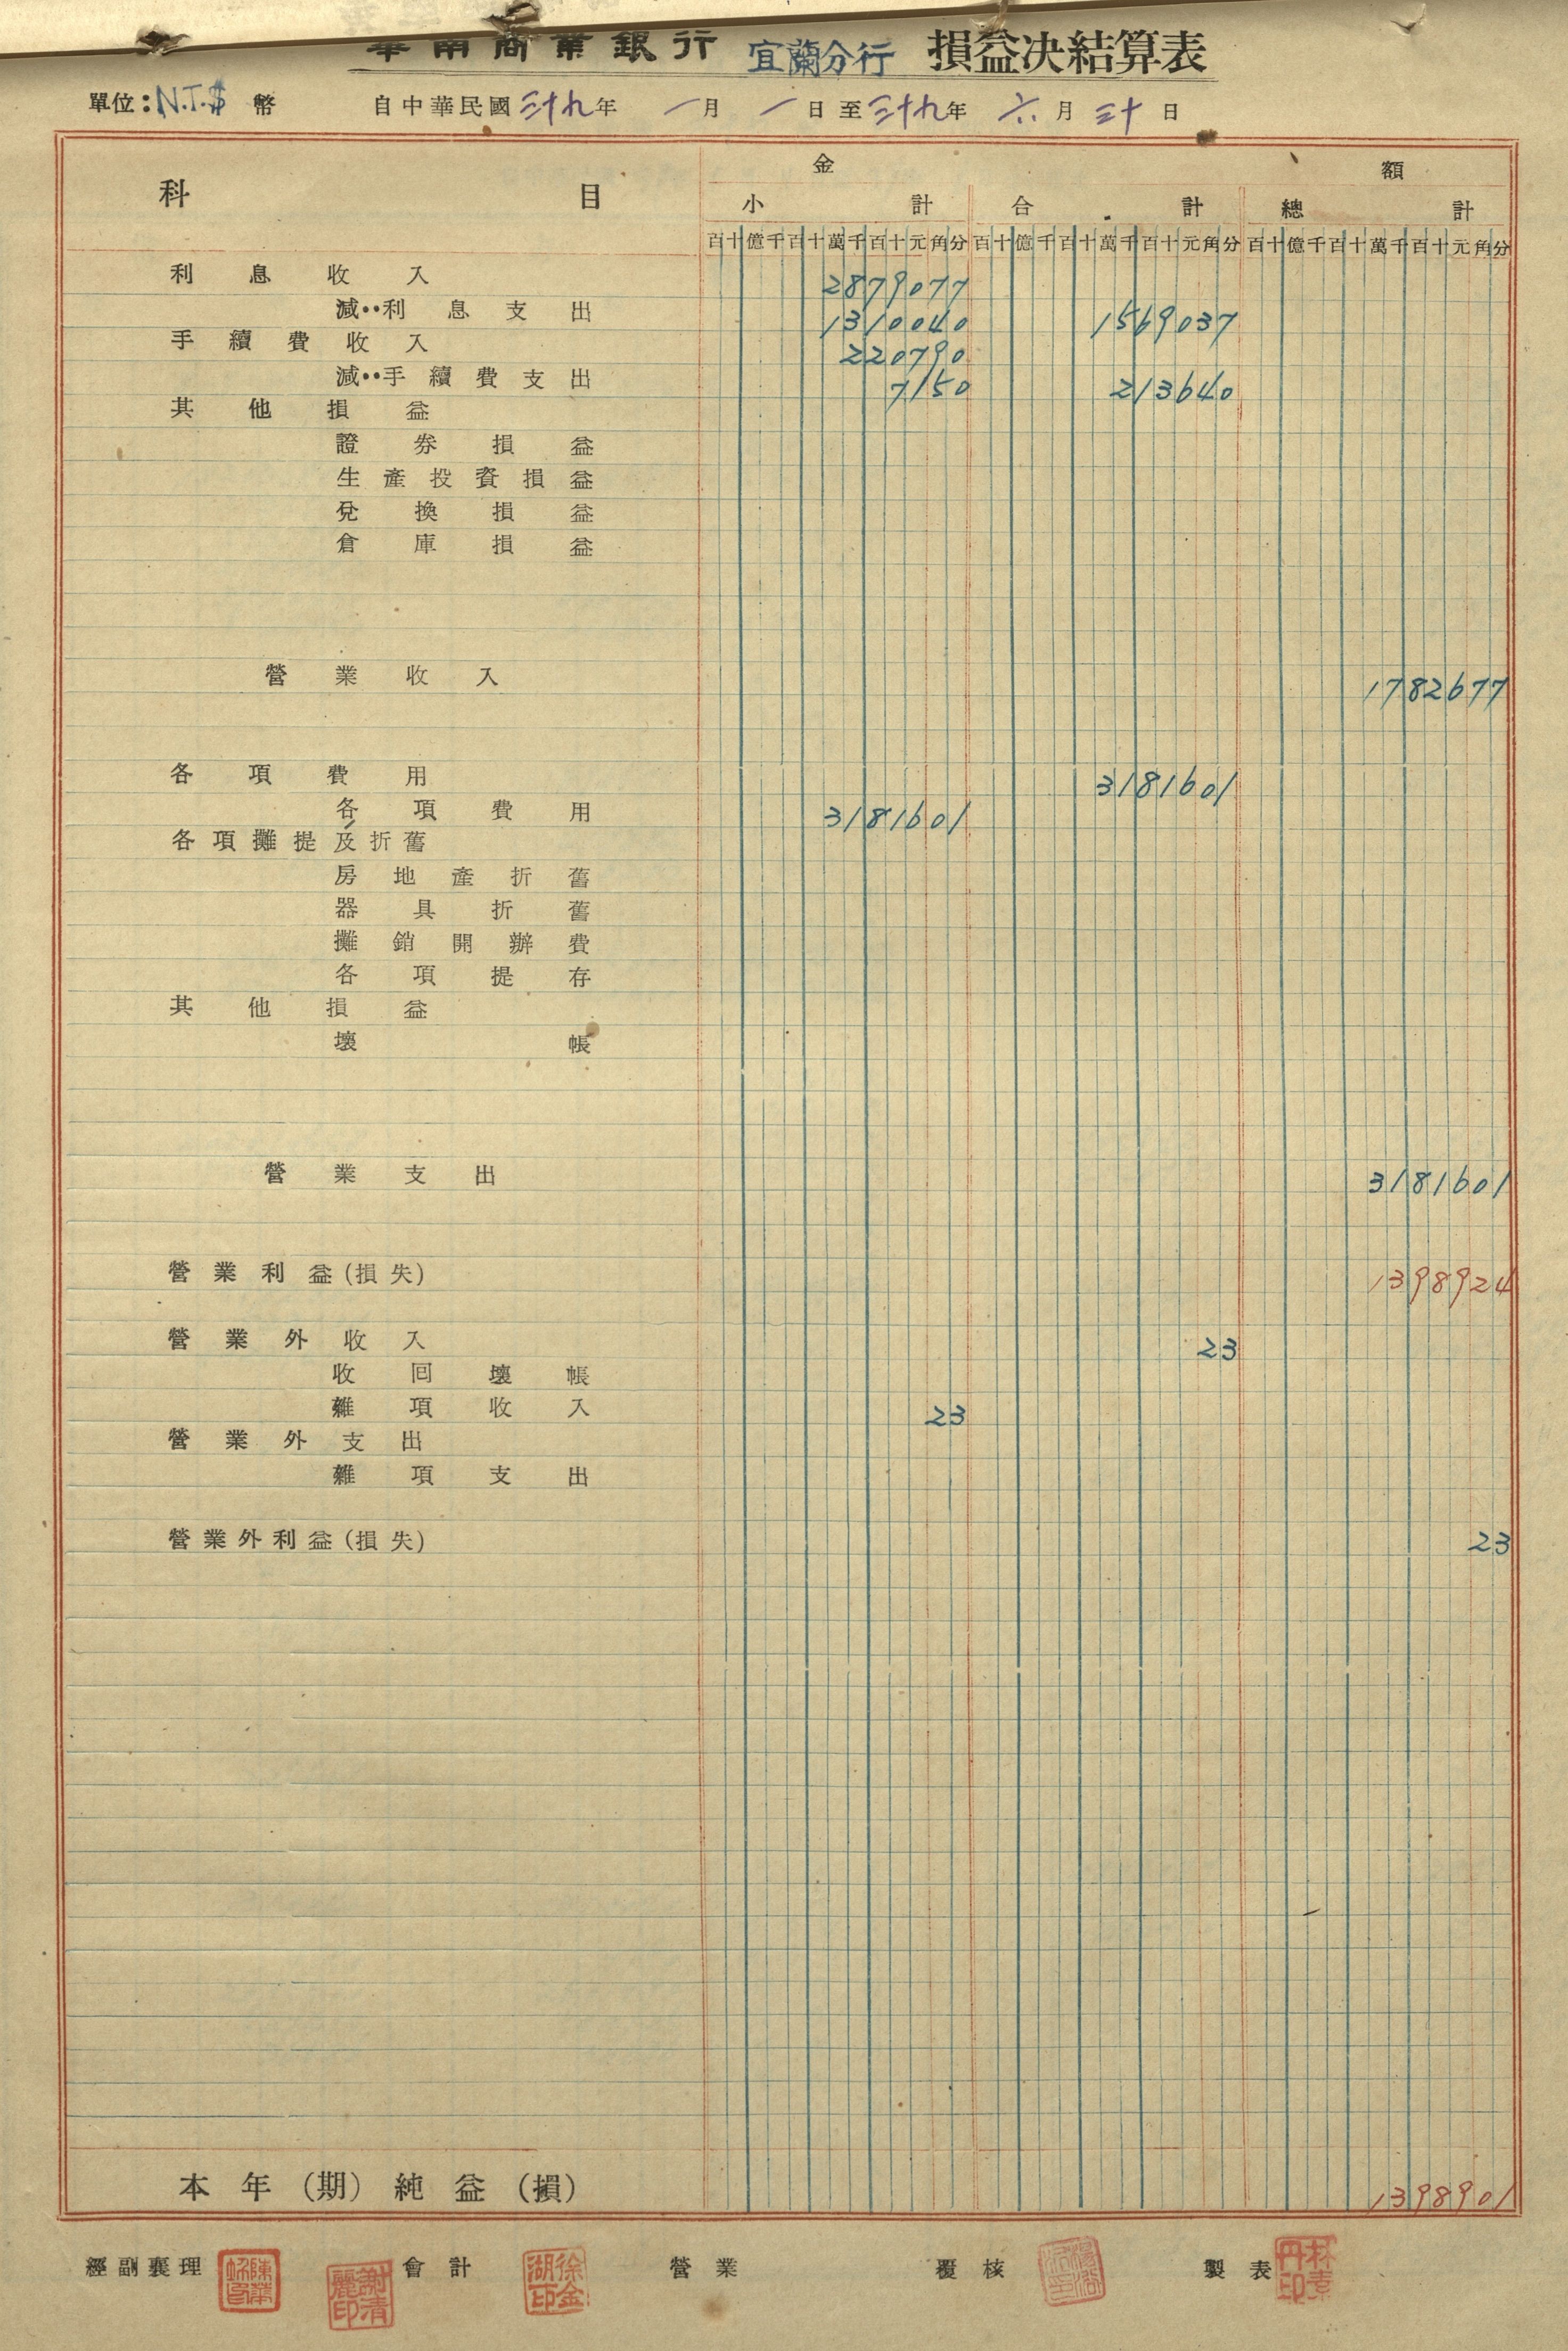 華南商業銀行 宜蘭分行 損益決結算表
單位：N.T.$ 幣 自中華民國三十九年 一月 一日至三十九年 六月三十日
科目 金額
小計 合計 總計
百十億千百十萬千百十元角分 百十億千百十萬千百十元角分 百十億千百十萬千百十元角分
利息收入 2879077
減：利息支出 1310040 1569037
手續費收入 220790
減：手續費支出 7150 213640
其他損益
證券損益
生產投資損益
兌換損益
倉庫損益
營業收入 1782677
各項費用 3181601
各項費用 3181601
各項攤提及折舊
房地產折舊
器具折舊
攤銷開辦費
各項提存
其他損益
壞帳
營業支出 3181601
營業利益(損失) 1398924
營業外收入 23
收回壞帳
雜項收入 23
營業外支出
雜項支出
營業外利益(損失) 23
本年(期)純益(損) 1398901
經副襄理 謝清麗印 會計 徐金湖印 營業 覆核 製表 林素丹印